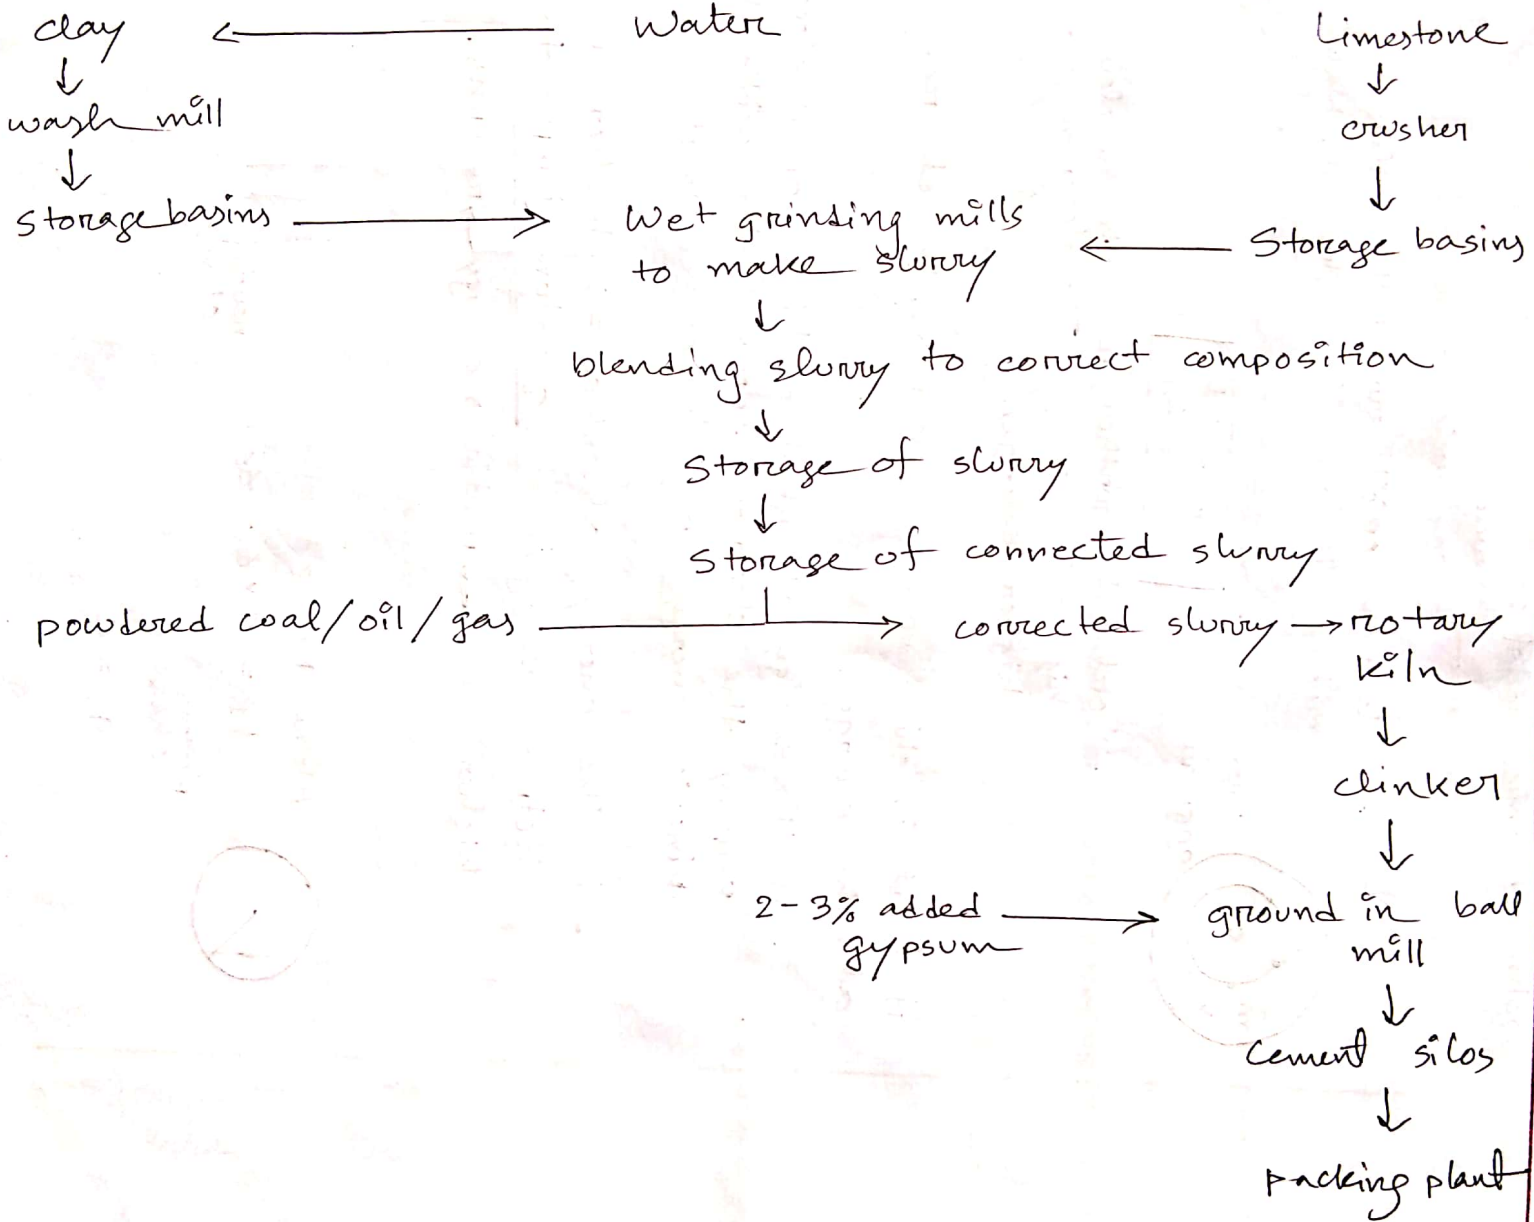 clay ← Water
Limestone
↓
↓
wash mill
crusher
↓
↓
Storage basins → Wet grinding mills
to make slurry ← Storage basins
↓
blending slurry to correct composition
↓
Storage of slurry
↓
Storage of corrected slurry
powdered coal/oil/gas → corrected slurry → rotary
kiln
↓
clinker
↓
2-3% added → ground in ball
gypsum mill
↓
Cement silos
↓
packing plant